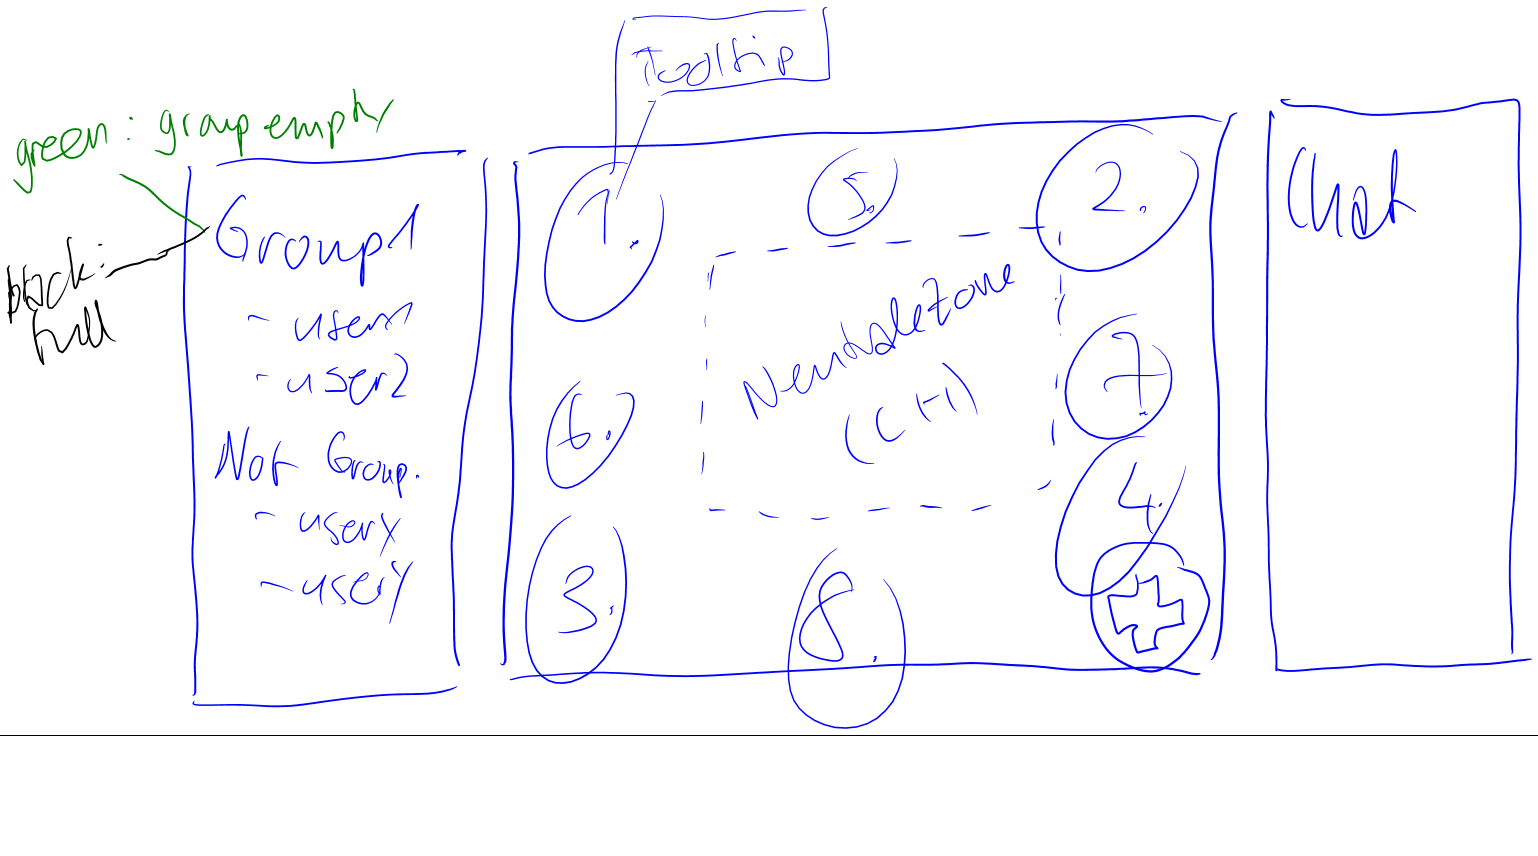 Tooltip
green: group empty
black:
full
Group1
- user1
- user2
Not Group.
- userX
- userY
1.
5.
2.
Neutralezone
(CH)
6.
7.
4.
3.
8.
Chat